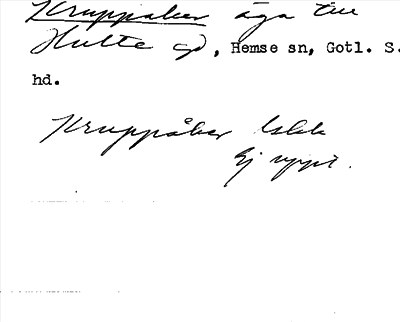 Kruppåker äga till
Hulte gd, Hemse sn, Gotl. S.
hd.
Kruppåker
Ej uppt.